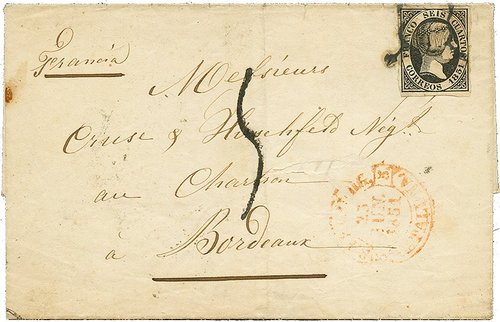 Francia
FRANCO SEIS CUARTOS
CORREOS 1851
Messieurs
Cruse & Hirschfeld Nég.t
au Chartron
à Bordeaux
5